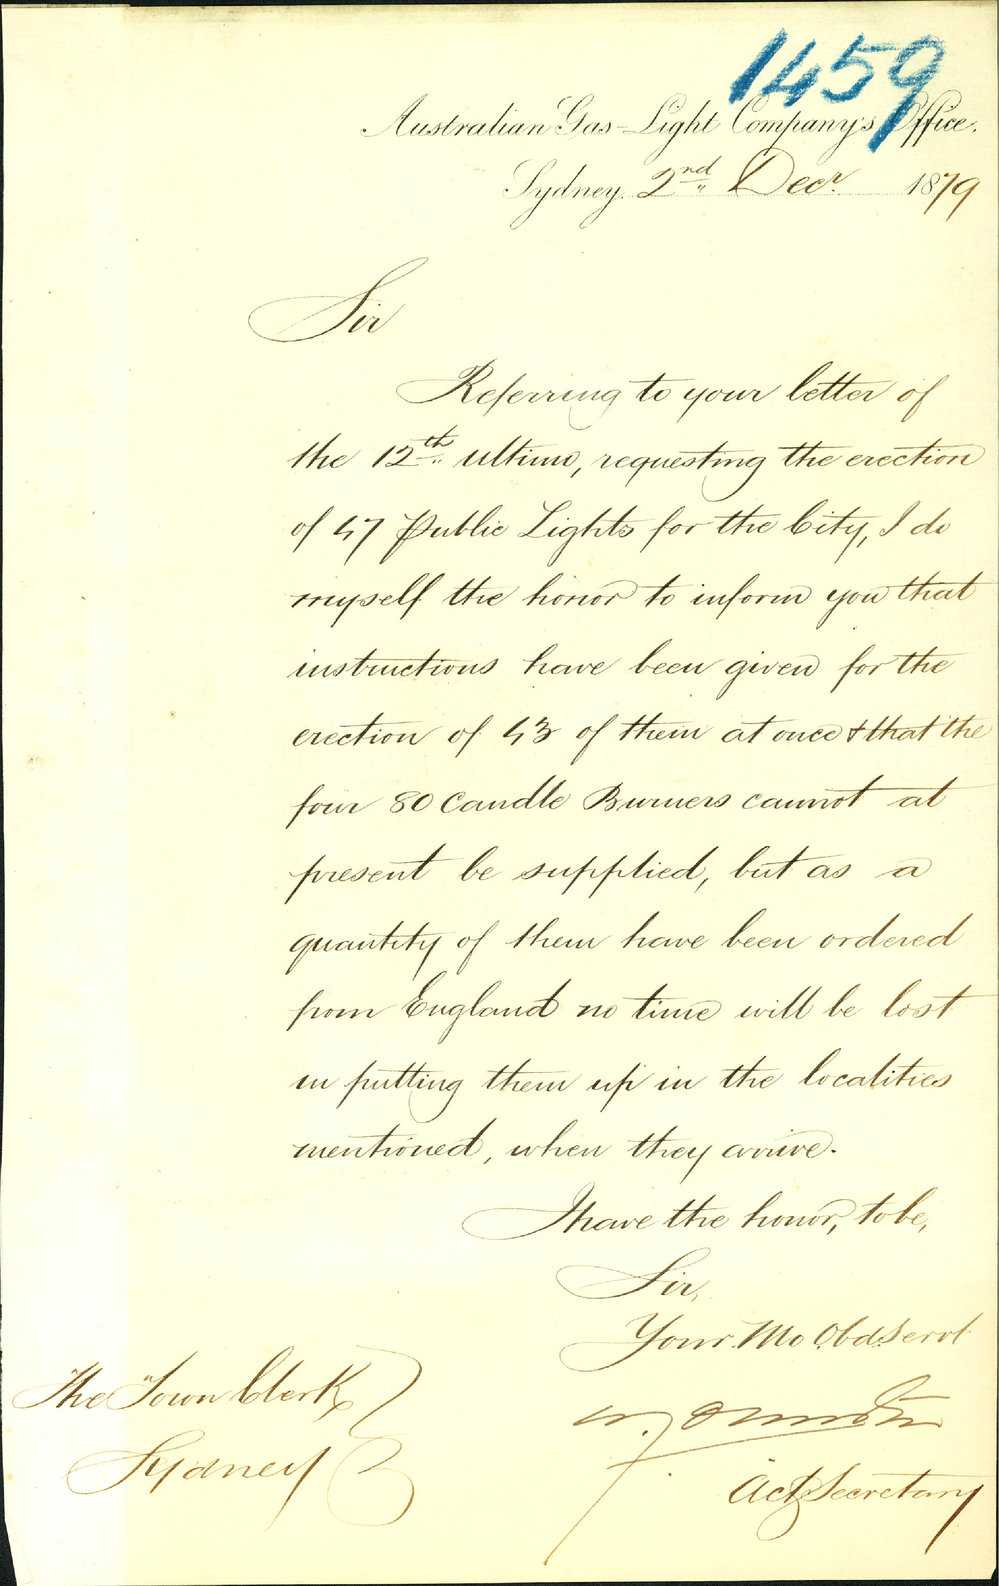 1459
Australian Gas-Light Company's Office.
Sydney. 2nd Decr. 1879
Sir
Referring to your letter of
the 12th ultimo, requesting the erection
of 47 Public Lights for the City, I do
myself the honor to inform you that
instructions have been given for the
erection of 43 of them at once & that the
four 80 Candle Burners cannot at
present be supplied, but as a
quantity of them have been ordered
from England no time will be lost
in putting them up in the localities
mentioned, when they arrive.
I have the honor, to be,
Sir,
Your Mo Obd Servt
Actg Secretary
The Town Clerk
Sydney